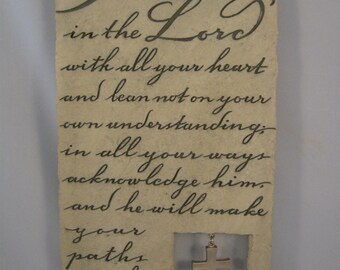 in the Lord
with all your heart
and lean not on your
own understanding;
in all your ways
acknowledge him
and he will make
your
paths